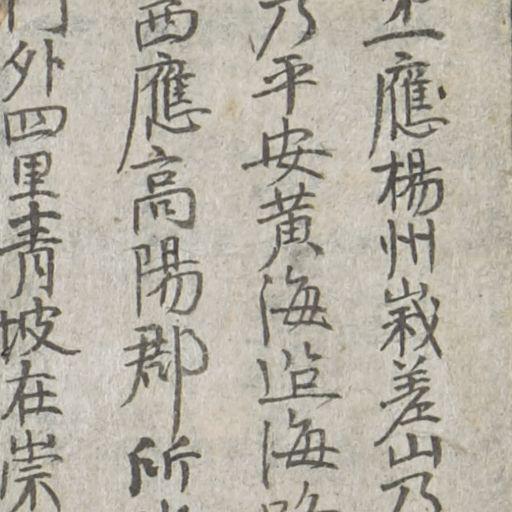 應楊州峩差山乃
乃平安黃海迲海路
西應高陽郡所
門外四里靑坡在崇